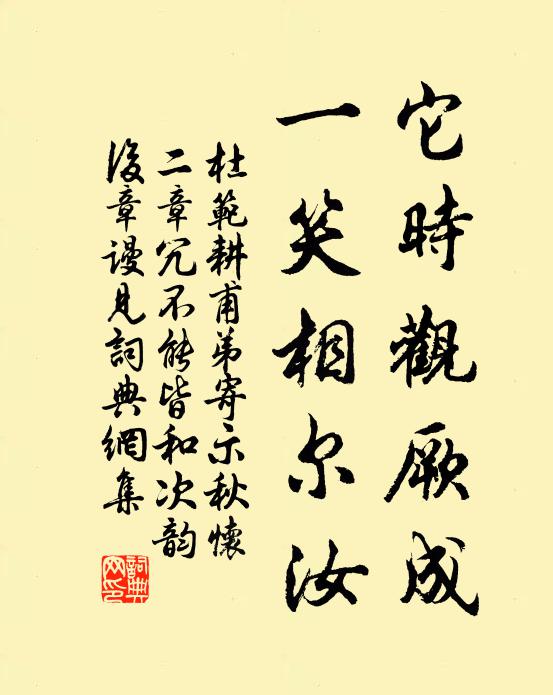 它時觀厥成
一笑相尔汝
杜範耕甫弟寄示秋懷
二章冗不能皆和次韵
後章谩見詞典網集
詞典网印